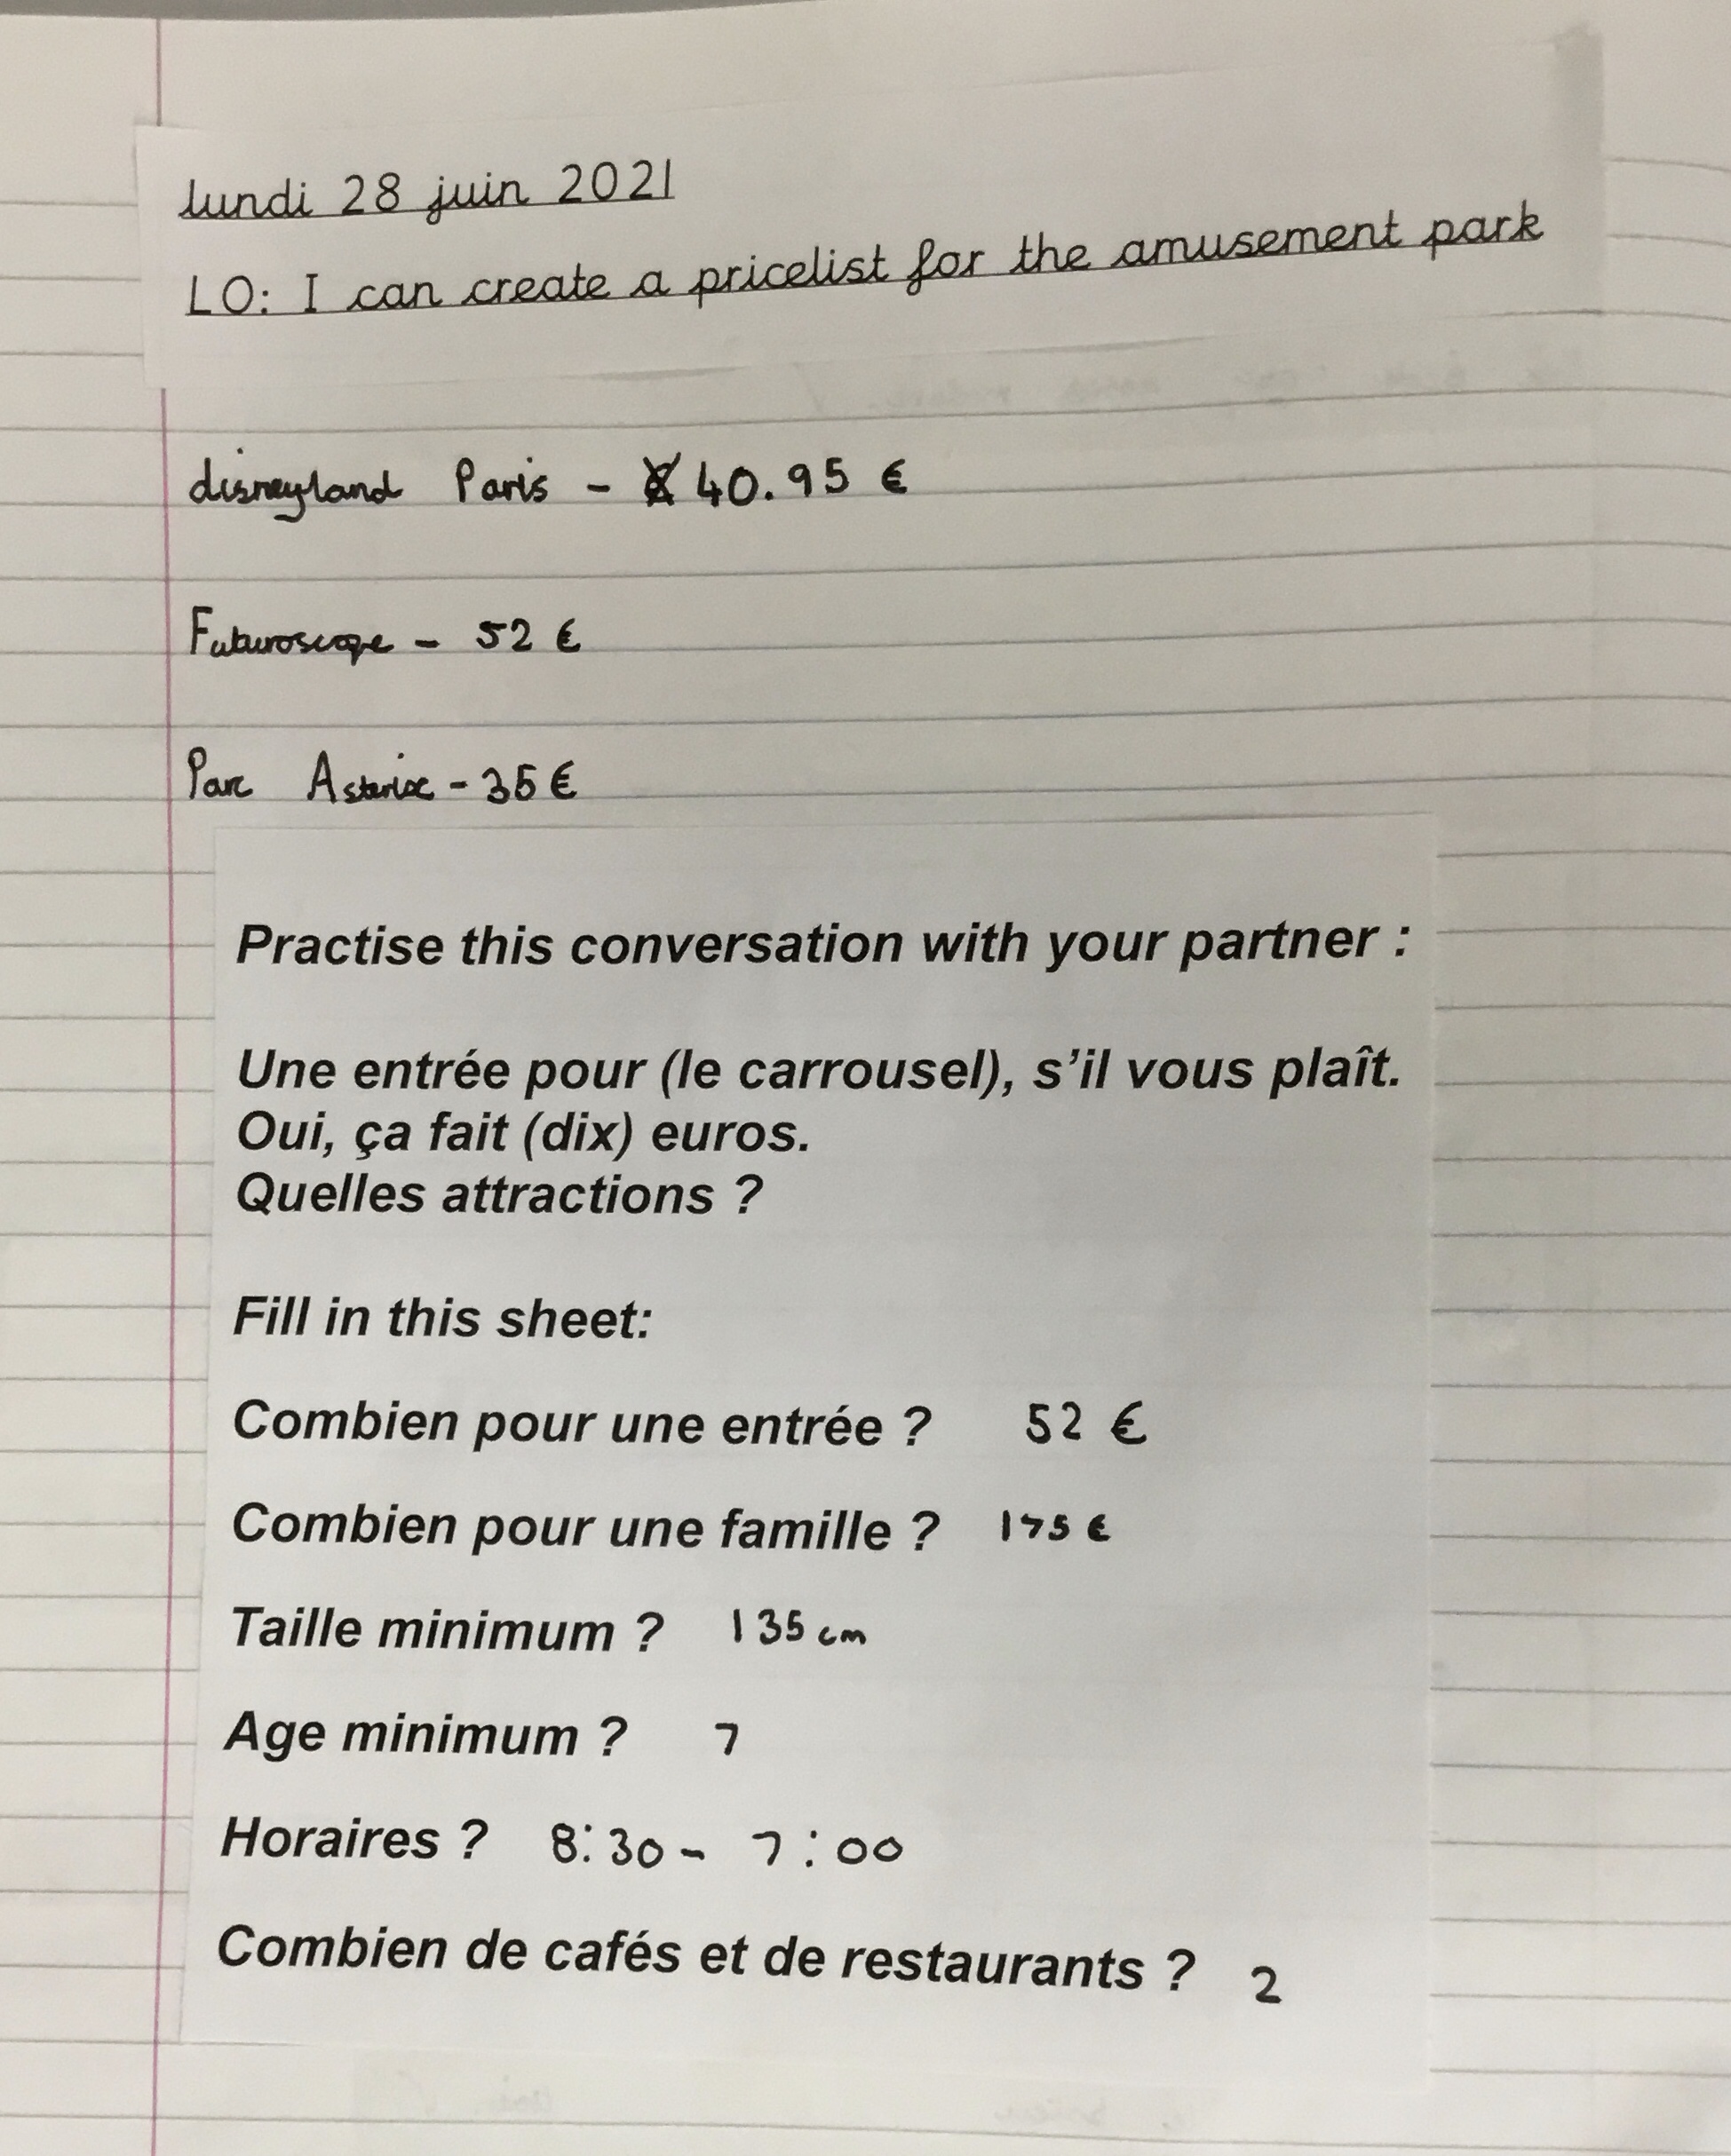 lundi 28 juin 2021
LO: I can create a pricelist for the amusement park
disneyland Paris - 40.95 €
Futuroscope - 52 €
Parc Asterix - 35 €
Practise this conversation with your partner :
Une entrée pour (le carrousel), s'il vous plaît.
Oui, ça fait (dix) euros.
Quelles attractions ?
Fill in this sheet:
Combien pour une entrée ? 52 €
Combien pour une famille ? 175 €
Taille minimum ? 135 cm
Age minimum ? 7
Horaires ? 8:30 - 7:00
Combien de cafés et de restaurants ? 2